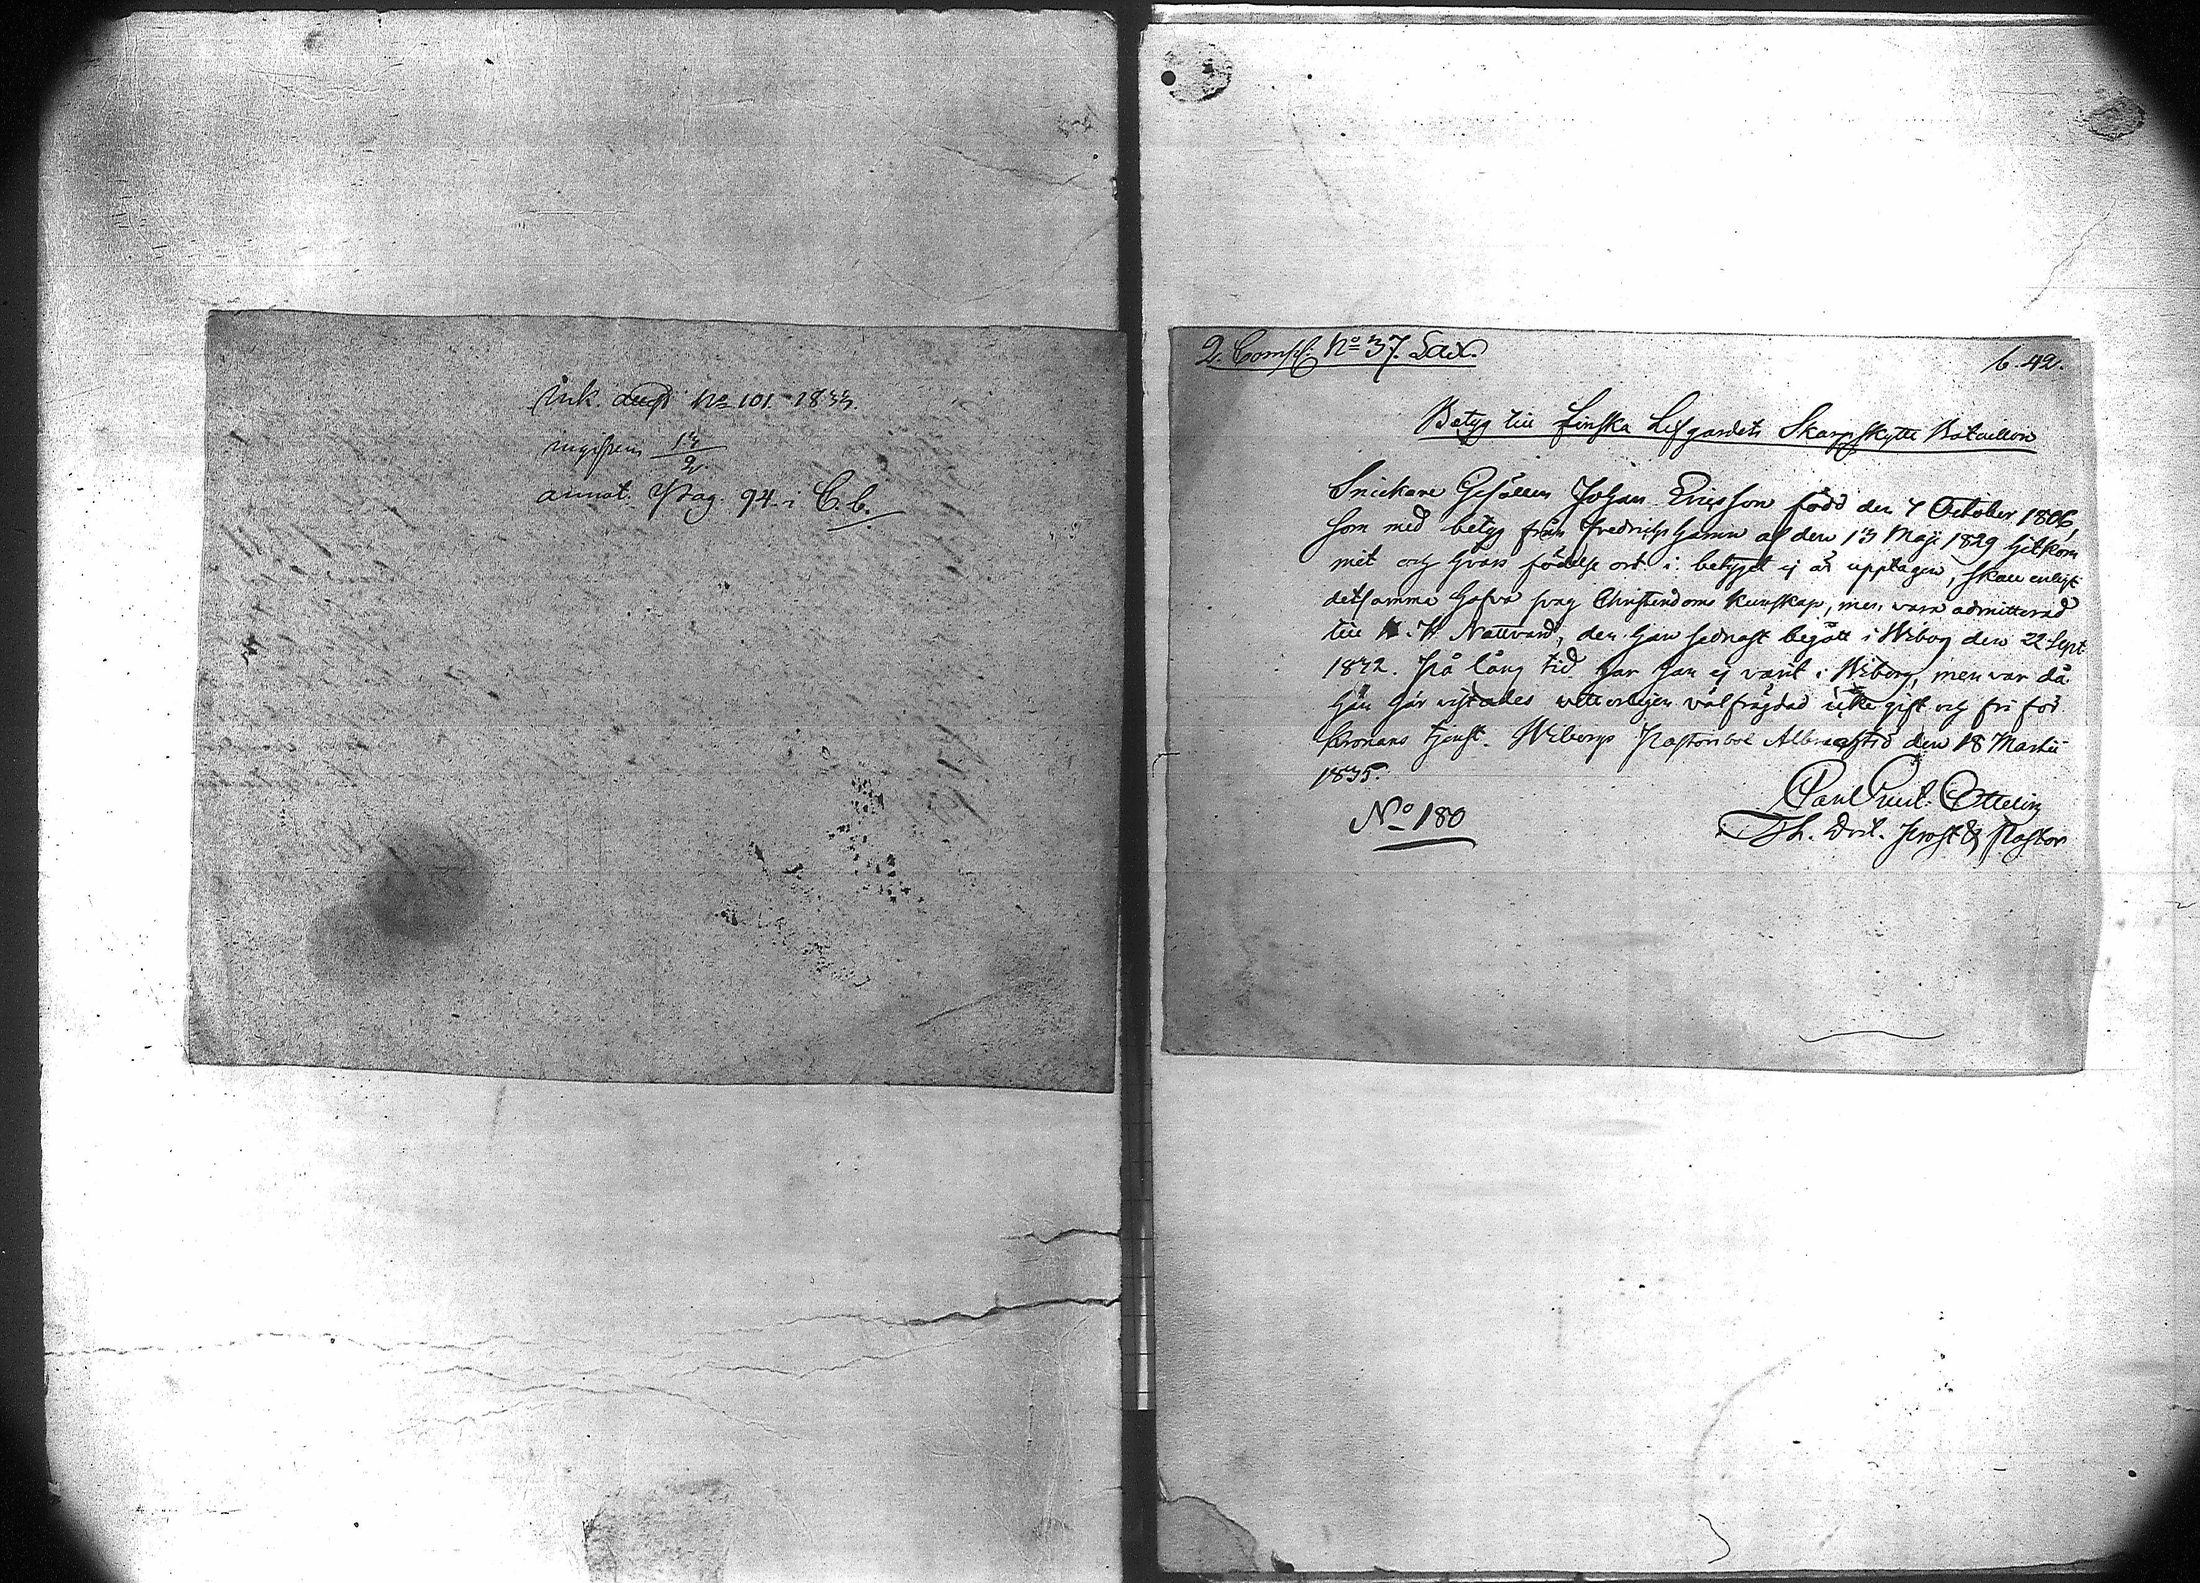 Ink. No 101. 1833.
ingifven 13/2
annot. Pag. 94 i C. b.
2. Comp: No 37. Lax.
b. 42.
Betyg till Finska Lifgardets Skarpskytte Bataillon
Snickare Gesällen Johan Ericsson född den 7 October 1806,
som med betyg från Fredrichshamn af den 13 Maji 1829 hitkom
mit och hvars födelse ort i betyget ej är upptagen, skall enligt
detsamma hafva svag Christendoms kunskap, men vara admitterad
till H. H. Nattvard, den han sednast begått i Wiborg den 22 Sept
1832. På lång tid har han ej varit i Wiborg, men var då
han här vistades veterligen välfrägdad icke gift och fri för
Kronans tjenst. Wiborgs Pastorsbol Albrechtid den 18 Martii
1835.
Paul Ottelin
No 180
Th. Doct. Prost & Pastor